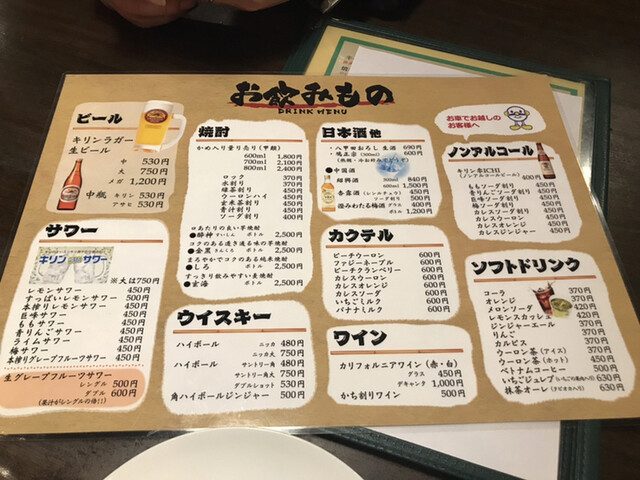 お飲みもの
DRINK MENU
ビール
キリンラガー
生ビール
中 530円
大 750円
メガ 1,200円
中瓶 キリン 530円
アサヒ 530円
サワー
キリン サワー
※大は750円
レモンサワー 450円
すっぱいレモンサワー 500円
本搾りレモンサワー 450円
巨峰サワー 450円
ももサワー 450円
青りんごサワー 450円
ライムサワー 450円
梅サワー 450円
本搾りグレープフルーツサワー 450円
生グレープフルーツサワー
シングル 500円
ダブル 600円
(果汁がシングルの倍!!)
焼酎
かめ入り量り売り(甲類)
600ml 1,800円
700ml 2,100円
800ml 2,400円
ロック 350円
水割り 350円
緑茶割り 400円
ウーロンハイ 400円
玄米茶割り 450円
青汁割り 450円
ソーダ割り 400円
口あたりの良い芋焼酎
●酔神 すいしん ボトル 2,500円
コクのある
●金黒 きんくろ ボトル 2,500円
まろやかでコクのある純米焼酎
●しろ ボトル 2,500円
すっきり飲みやすい麦焼酎
●玄海 ボトル 2,500円
ウイスキー
ハイボール ニッカ 480円
ニッカ大 750円
ハイボール サントリー角 480円
サントリー角大 750円
ダブルショット 530円
角ハイボールジンジャー 500円
日本酒 他
・八甲田おろし 生酒 690円
・鳩正宗 (300ml) 600円
●中国酒
紹興酒 300ml 840円
澄みわたる梅酒 グラス 400円
ボトル 1,200円
カクテル
ピーチウーロン 600円
ファジーネーブル 600円
ピーチクランベリー 600円
カシスウーロン 600円
カシスオレンジ 600円
カシスソーダ 600円
いちごミルク 600円
バナナミルク 600円
ワイン
カリフォルニアワイン(赤・白)
グラス 450円
デキャンタ 1,000円
かち割りワイン 500円
お車でお越しの
お客様へ
ノンアルコール
キリン零ICHI
(ノンアルコールビール) 450円
ももソーダ割り 450円
青りんごソーダ割り 450円
巨峰ソーダ割り 450円
梅ソーダ割り 450円
カシスウーロン 450円
カシスオレンジ 450円
カシスジンジャー 450円
ソフトドリンク
コーラ 370円
オレンジ 370円
メロンソーダ 420円
レモンスカッシュ 420円
ジンジャーエール 370円
りんご 370円
カルピス 370円
ウーロン茶(アイス) 370円
ウーロン茶(ホット) 450円
ベトナムコーヒー 500円
いちごジュレブ 630円
抹茶オーレ (タピオカ入り) 630円